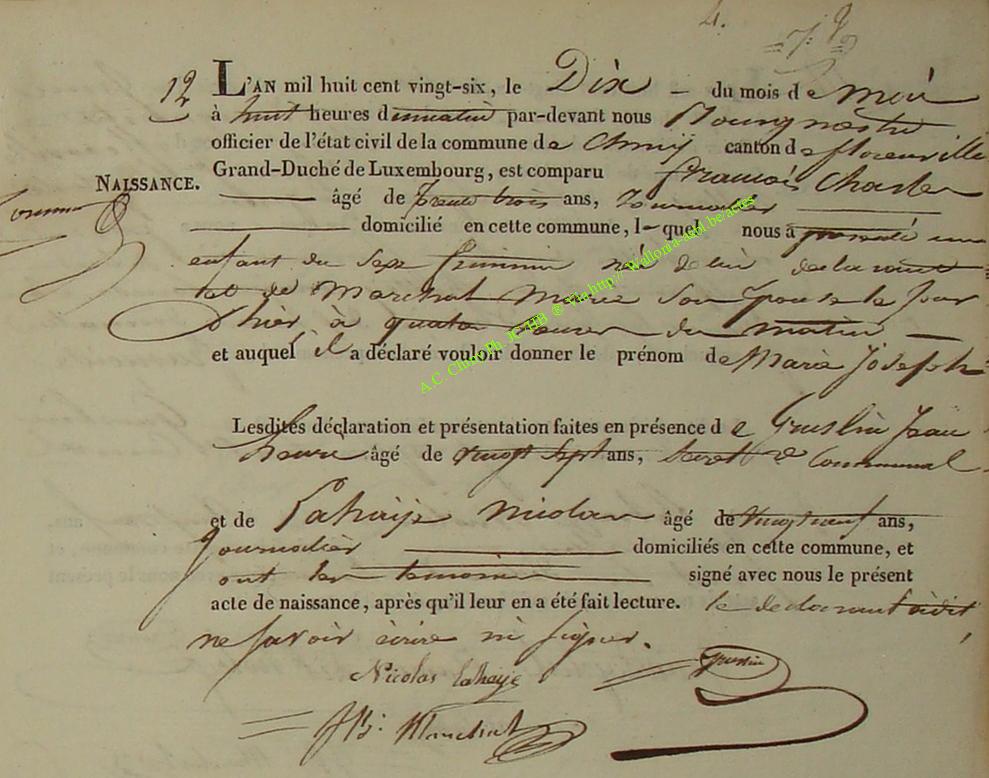 4.
12
L'AN mil huit cent vingt-six, le Dix du mois de mai
à huit heures du matin par-devant nous Bourgmestre
officier de l'état civil de la commune de Chiny canton de florenville
NAISSANCE.
Grand-Duché de Luxembourg, est comparu françois Charles
âgé de trente trois ans, journalier
domicilié en cette commune, lequel nous a presenté un
enfant du sexe feminin né de lui declarant
et de Marchal Marie son epouse le jour
d'hier à quatre heures du matin
et auquel il a déclaré vouloir donner le prénom de Marie Joseph
Lesdites déclaration et présentation faites en présence de Jean
âgé de vingt sept ans, Communal
et de Lahaije Nicolas âgé de vingt neuf ans,
journalier domiciliés en cette commune, et
ont les temoins signé avec nous le présent
acte de naissance, après qu'il leur en a été fait lecture. le declarant a dit
ne savoir écrire ni signer.
Nicolas Lahaije
A.C. Chiny Ph JC HB @ Via http://Wallonia-asbl.be/actes